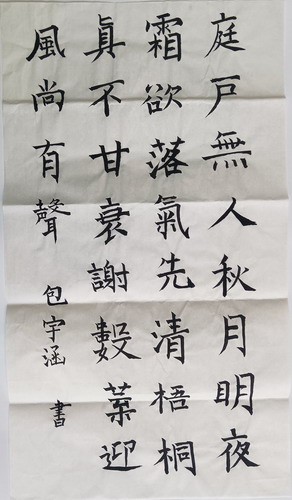 庭戶無人秋月明夜
霜欲落氣先清梧桐
眞不甘衰謝數葉迎
風尚有聲 包宇涵 書